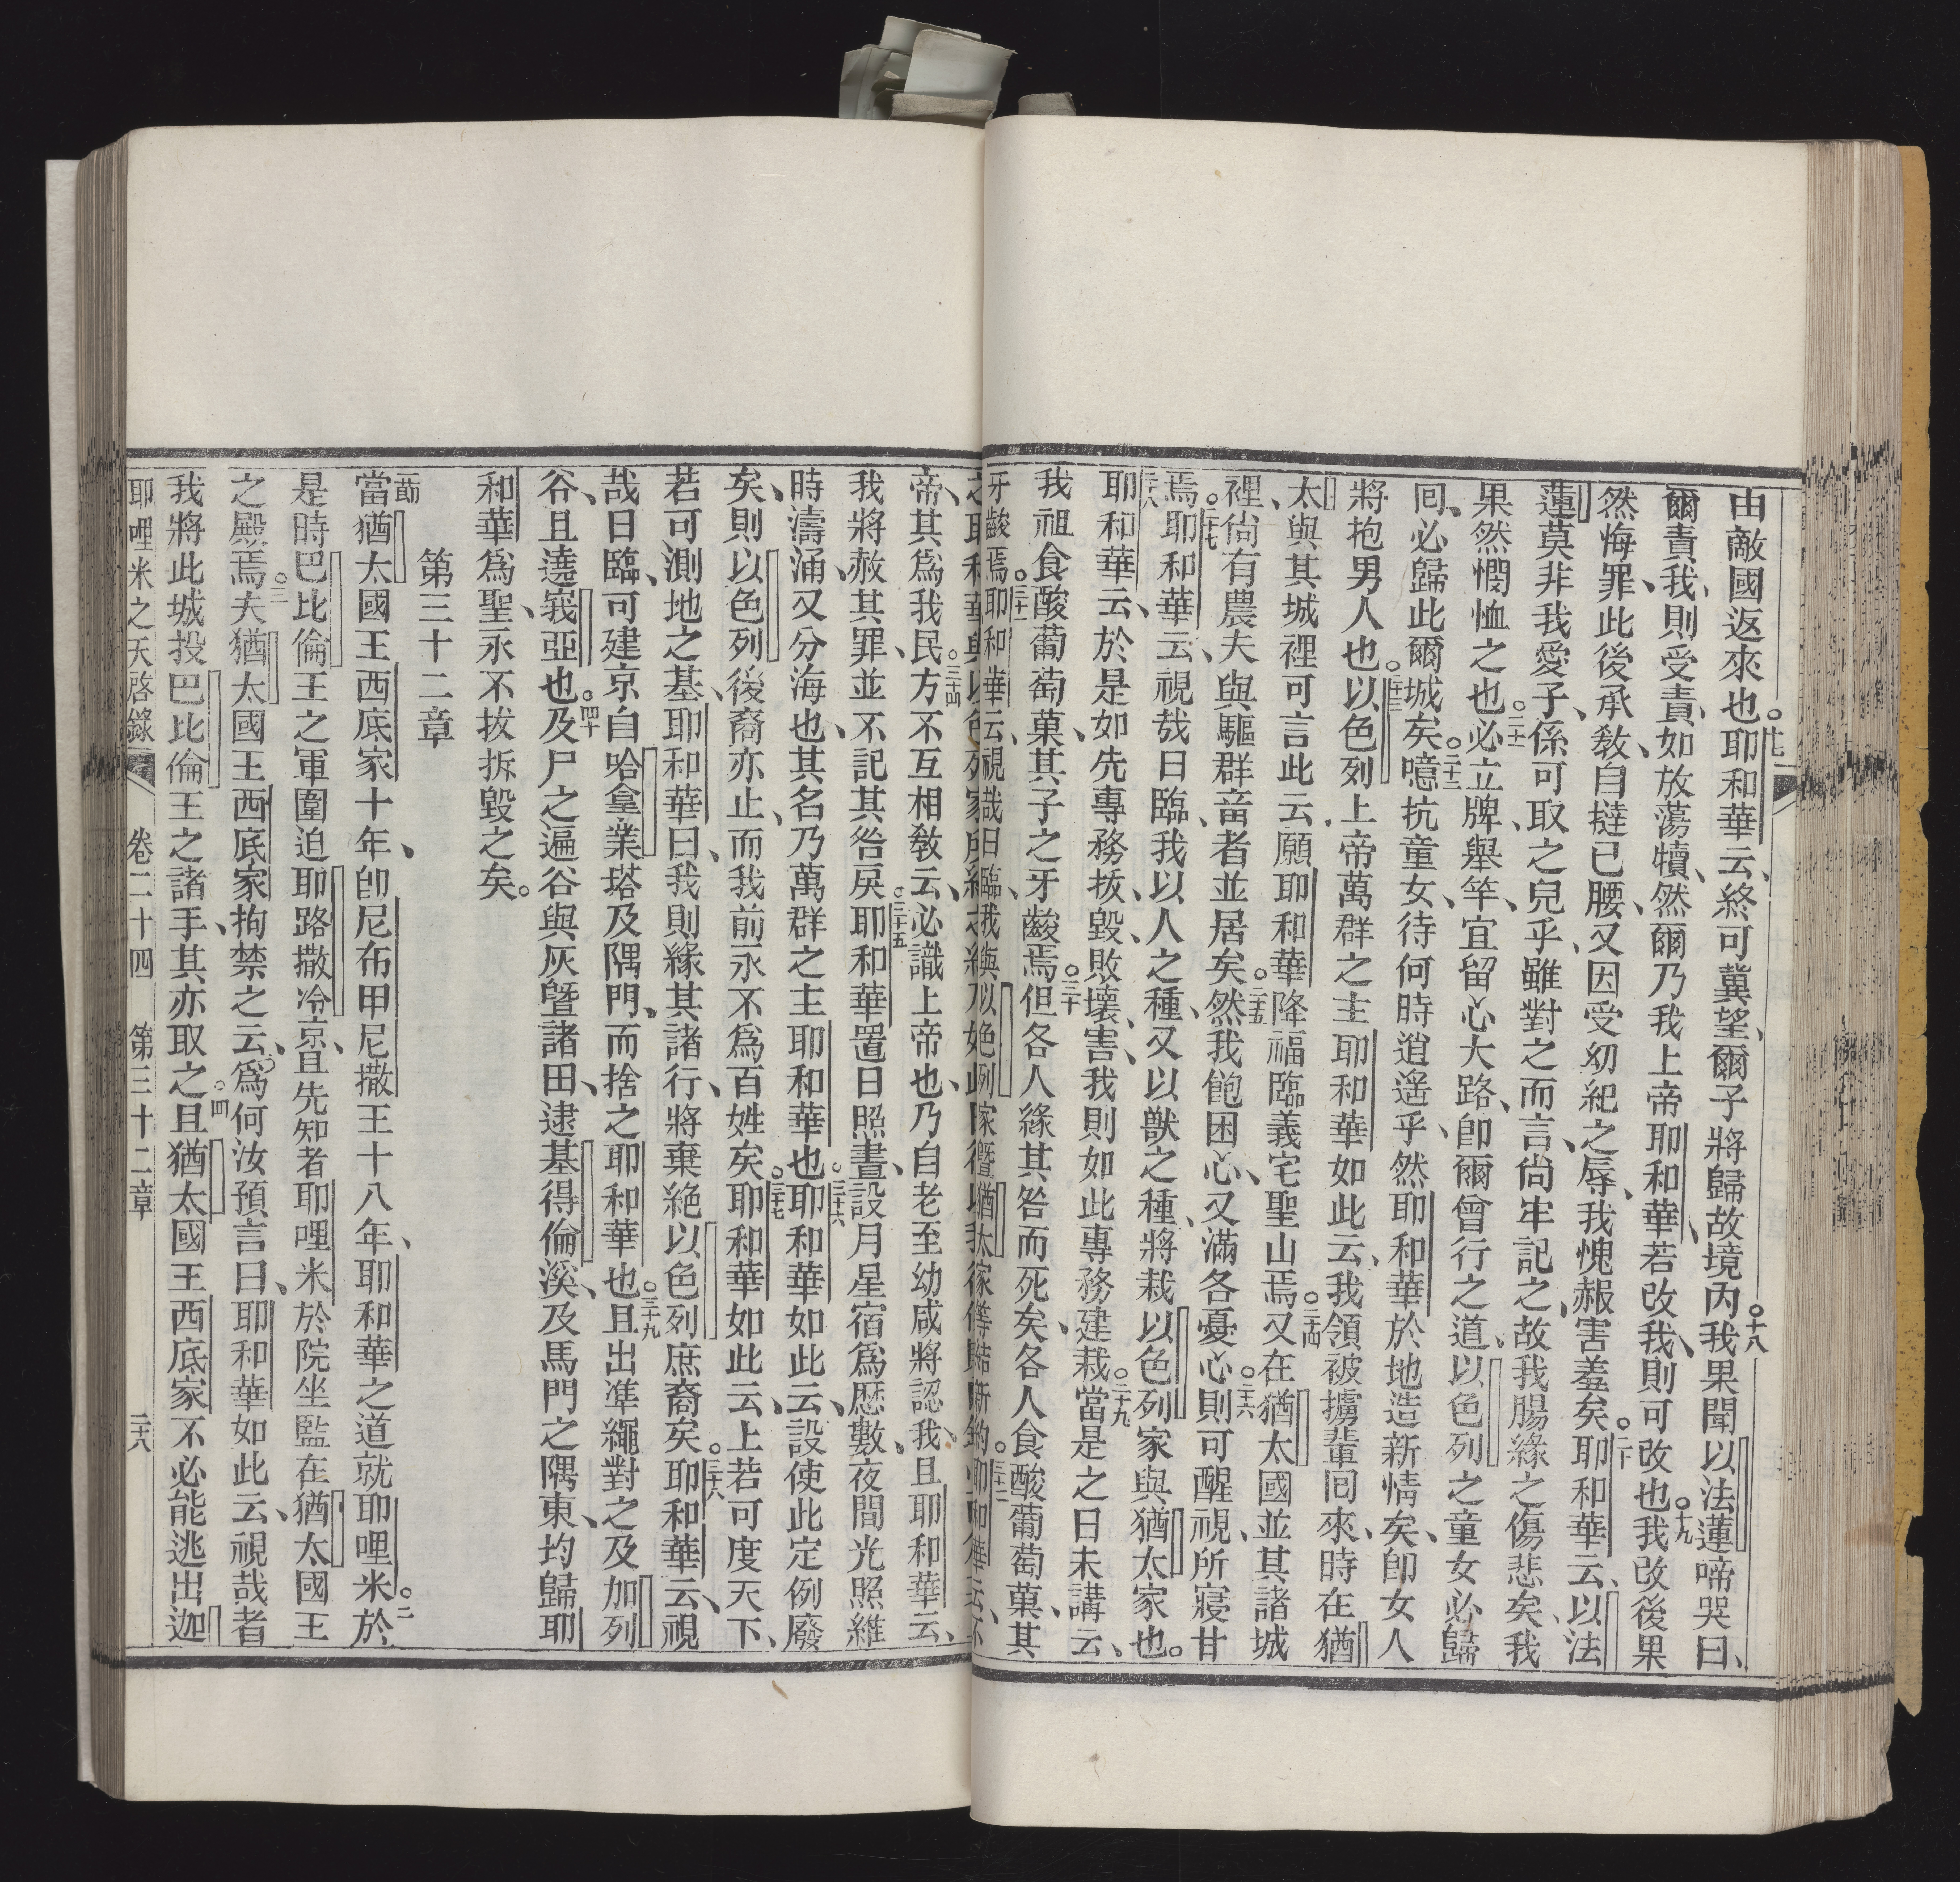 由敵國返來也。十七耶和華云、終可冀望、爾子將歸故境內。十八我果聞以法蓮啼哭曰、
爾責我、則受責、如放蕩犢、然爾乃我上帝耶和華、若改我、則可改也。十九我改後果
然悔罪、此後承教、自撻已腰、又因受幼紀之辱、我愧赧害羞矣。二十耶和華云、以法
蓮莫非我愛子、係可取之兒乎、雖對之而言、尚牢記之、故我腸緣之傷悲矣、我
果然憫恤之也。二十一必立牌、舉竿、宜留心大路、卽爾曾行之道、以色列之童女必歸
囘、必歸此爾城矣。二十二噫抗童女、待何時逍遙乎、然耶和華於地造新情矣、卽女人
將抱男人也。二十三以色列上帝萬群之主耶和華如此云、我領被擄輩囘來、時在猶
太與其城裡、可言此云、願耶和華降福臨義宅聖山焉。二十四又在猶太國並其諸城
裡、尚有農夫與驅群畜者並居矣。二十五然我飽困心、又滿各憂心。二十六則可醒視、所寢甘
焉。二十七耶和華云、視哉日臨、我以人之種、又以獸之種、將栽以色列家與猶太家也。
二十八耶和華云、於是如先專務拔、毀、敗、壞、害、我則如此專務建栽。二十九當是之日未講云、
我祖食酸葡萄菓、其子之牙齼焉。三十但各人緣其咎而死矣、各人食酸葡萄菓、其
牙齼焉。三十一耶和華云、視哉日臨、我與以色列家曁猶太家等結新約。三十二耶和華云、不
帝、其爲我民。三十四方不互相教云、必識上帝也、乃自老至幼咸將認我、且耶和華云、
我將赦其罪、並不記其咎戾。三十五耶和華置日照晝、設月星宿爲歷數、夜間光照維
時濤涌、又分海也、其名乃萬群之主耶和華也。三十六耶和華如此云、設使此定例廢
矣、則以色列後裔亦止、而我前永不爲百姓矣。三十七耶和華如此云、上若可度天下、
若可測地之基、耶和華曰、我則緣其諸行、將棄絕以色列庶裔矣。三十八耶和華云、視
哉日臨、可建京自哈拿業塔及隅門、而捨之耶和華也。三十九且出準繩對之、及加列
谷、且遶峩亞也。四十及尸之遍谷與灰曁諸田、逮基得倫溪、及馬門之隅東、均歸耶
和華爲聖、永不拔拆毀之矣。
第三十二章
一節當猶太國王西底家十年、卽尼布甲尼撒王十八年、耶和華之道就耶哩米。二於
是時巴比倫王之軍圍迫耶路撒冷京、且先知者耶哩米於院坐監、在猶太國王
之殿焉。三夫猶太國王西底家拘禁之云、爲何汝預言曰、耶和華如此云、視哉者
我將此城投巴比倫王之諸手、其亦取之。四且猶太國王西底家不必能逃出迦
耶哩米之天啓錄 卷二十四 第三十二章 三十六